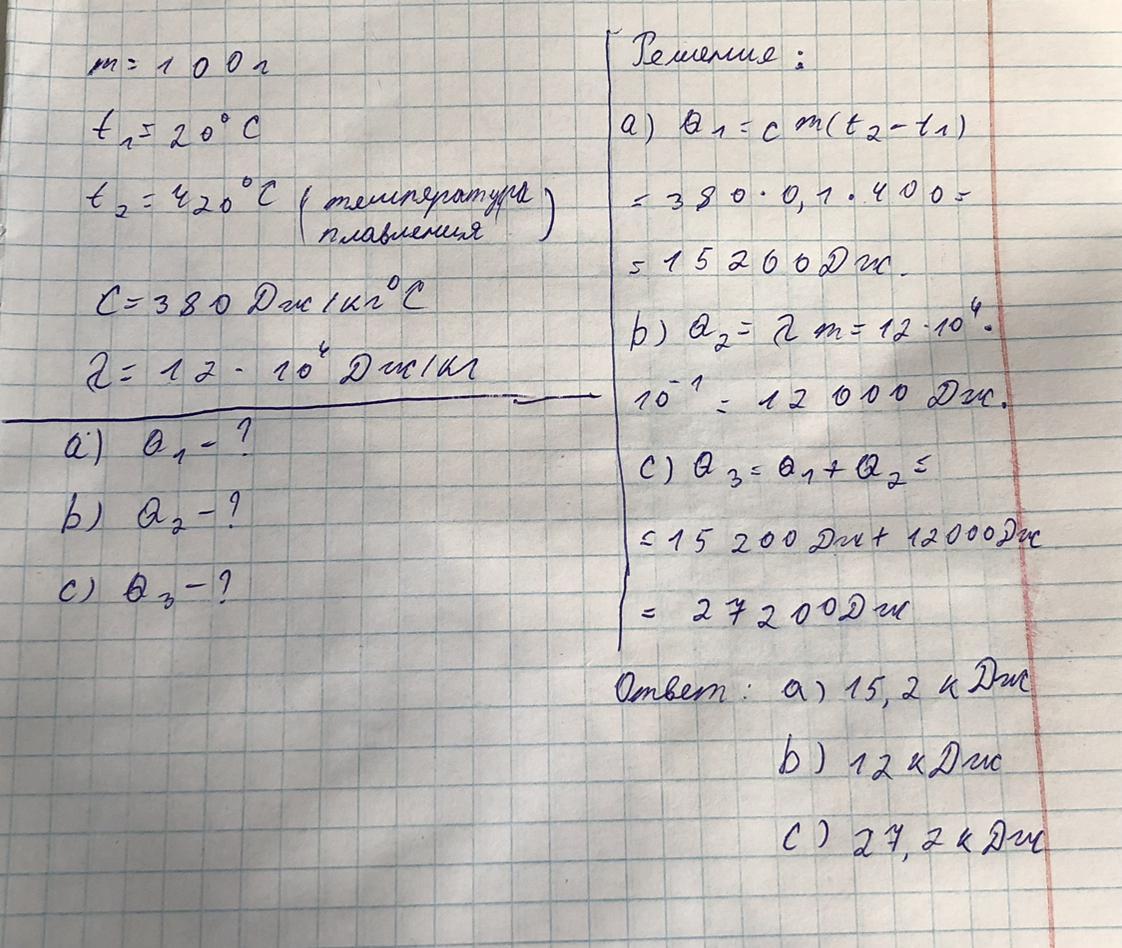 m = 100г
t₁ = 20°C
t₂ = 420°C (температура плавления)
C = 380 Дж/кг°C
λ = 12 · 10⁴ Дж/кг
a) Q₁ - ?
b) Q₂ - ?
c) Q₃ - ?
Решения:
a) Q₁ = cm(t₂-t₁)
= 380 · 0,1 · 400 =
= 15200 Дж.
b) Q₂ = λm = 12 · 10⁴ ·
10⁻¹ = 12000 Дж.
c) Q₃ = Q₁ + Q₂ =
= 15 200 Дж + 12000 Дж
= 27200 Дж
Ответ: a) 15,2 кДж
b) 12 кДж
c) 27,2 кДж